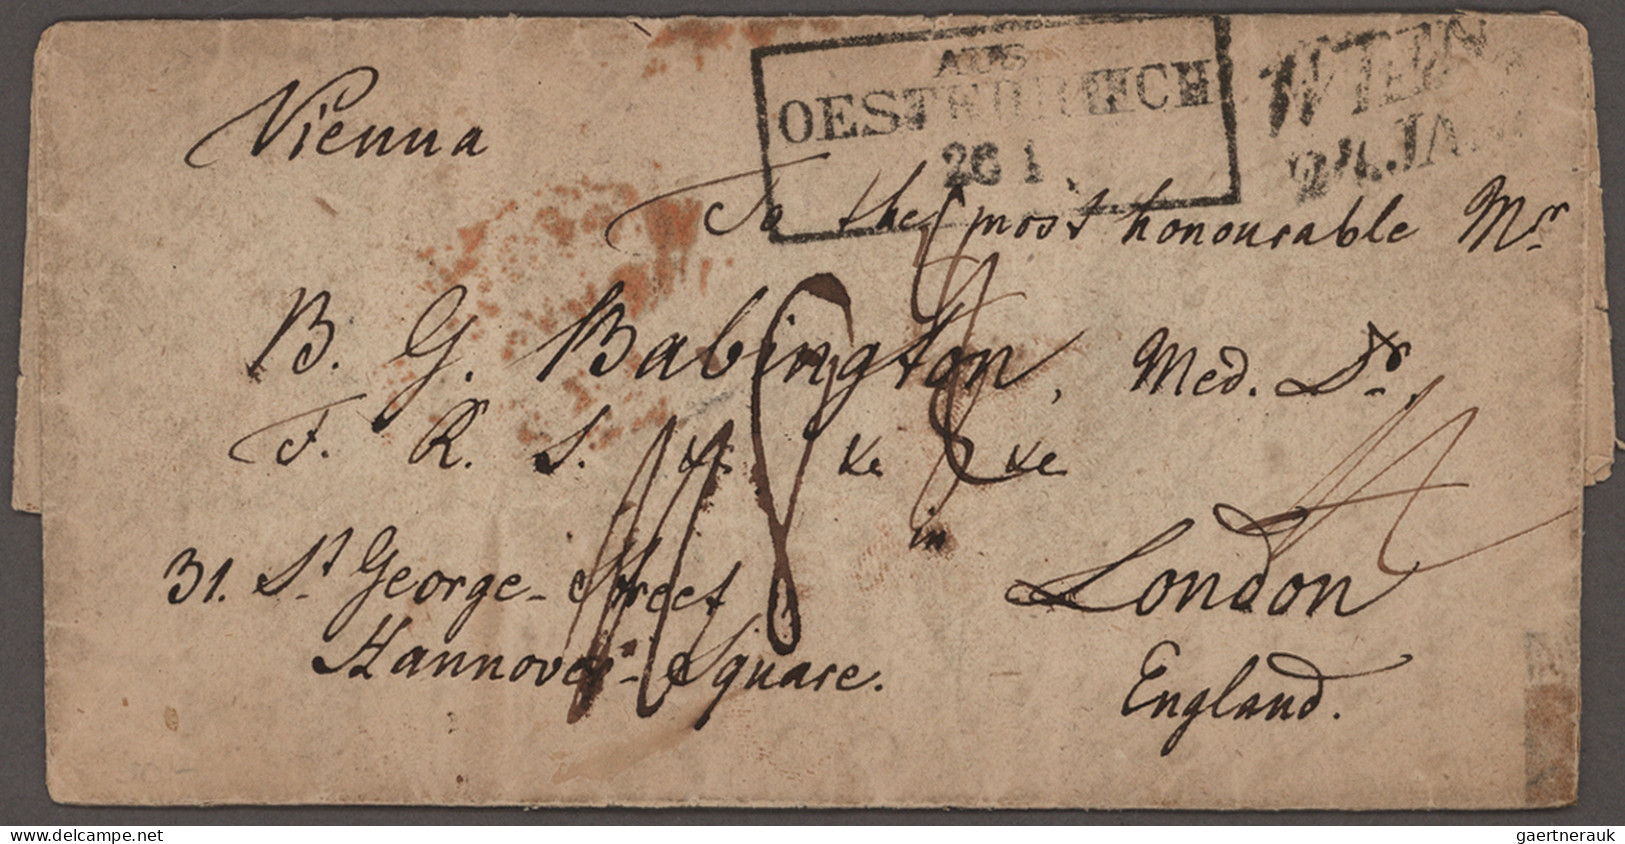 AUS
OESTERREICH
26 1
WIEN
24.JAN.
Vienna
To the most honourable Mr
B. G. Babington, Med. Dr.
F. R. S. &c &c &c
in
31. St George-Street
London
Hannover-Square.
England.
www.delcampe.net
gaertnerauk